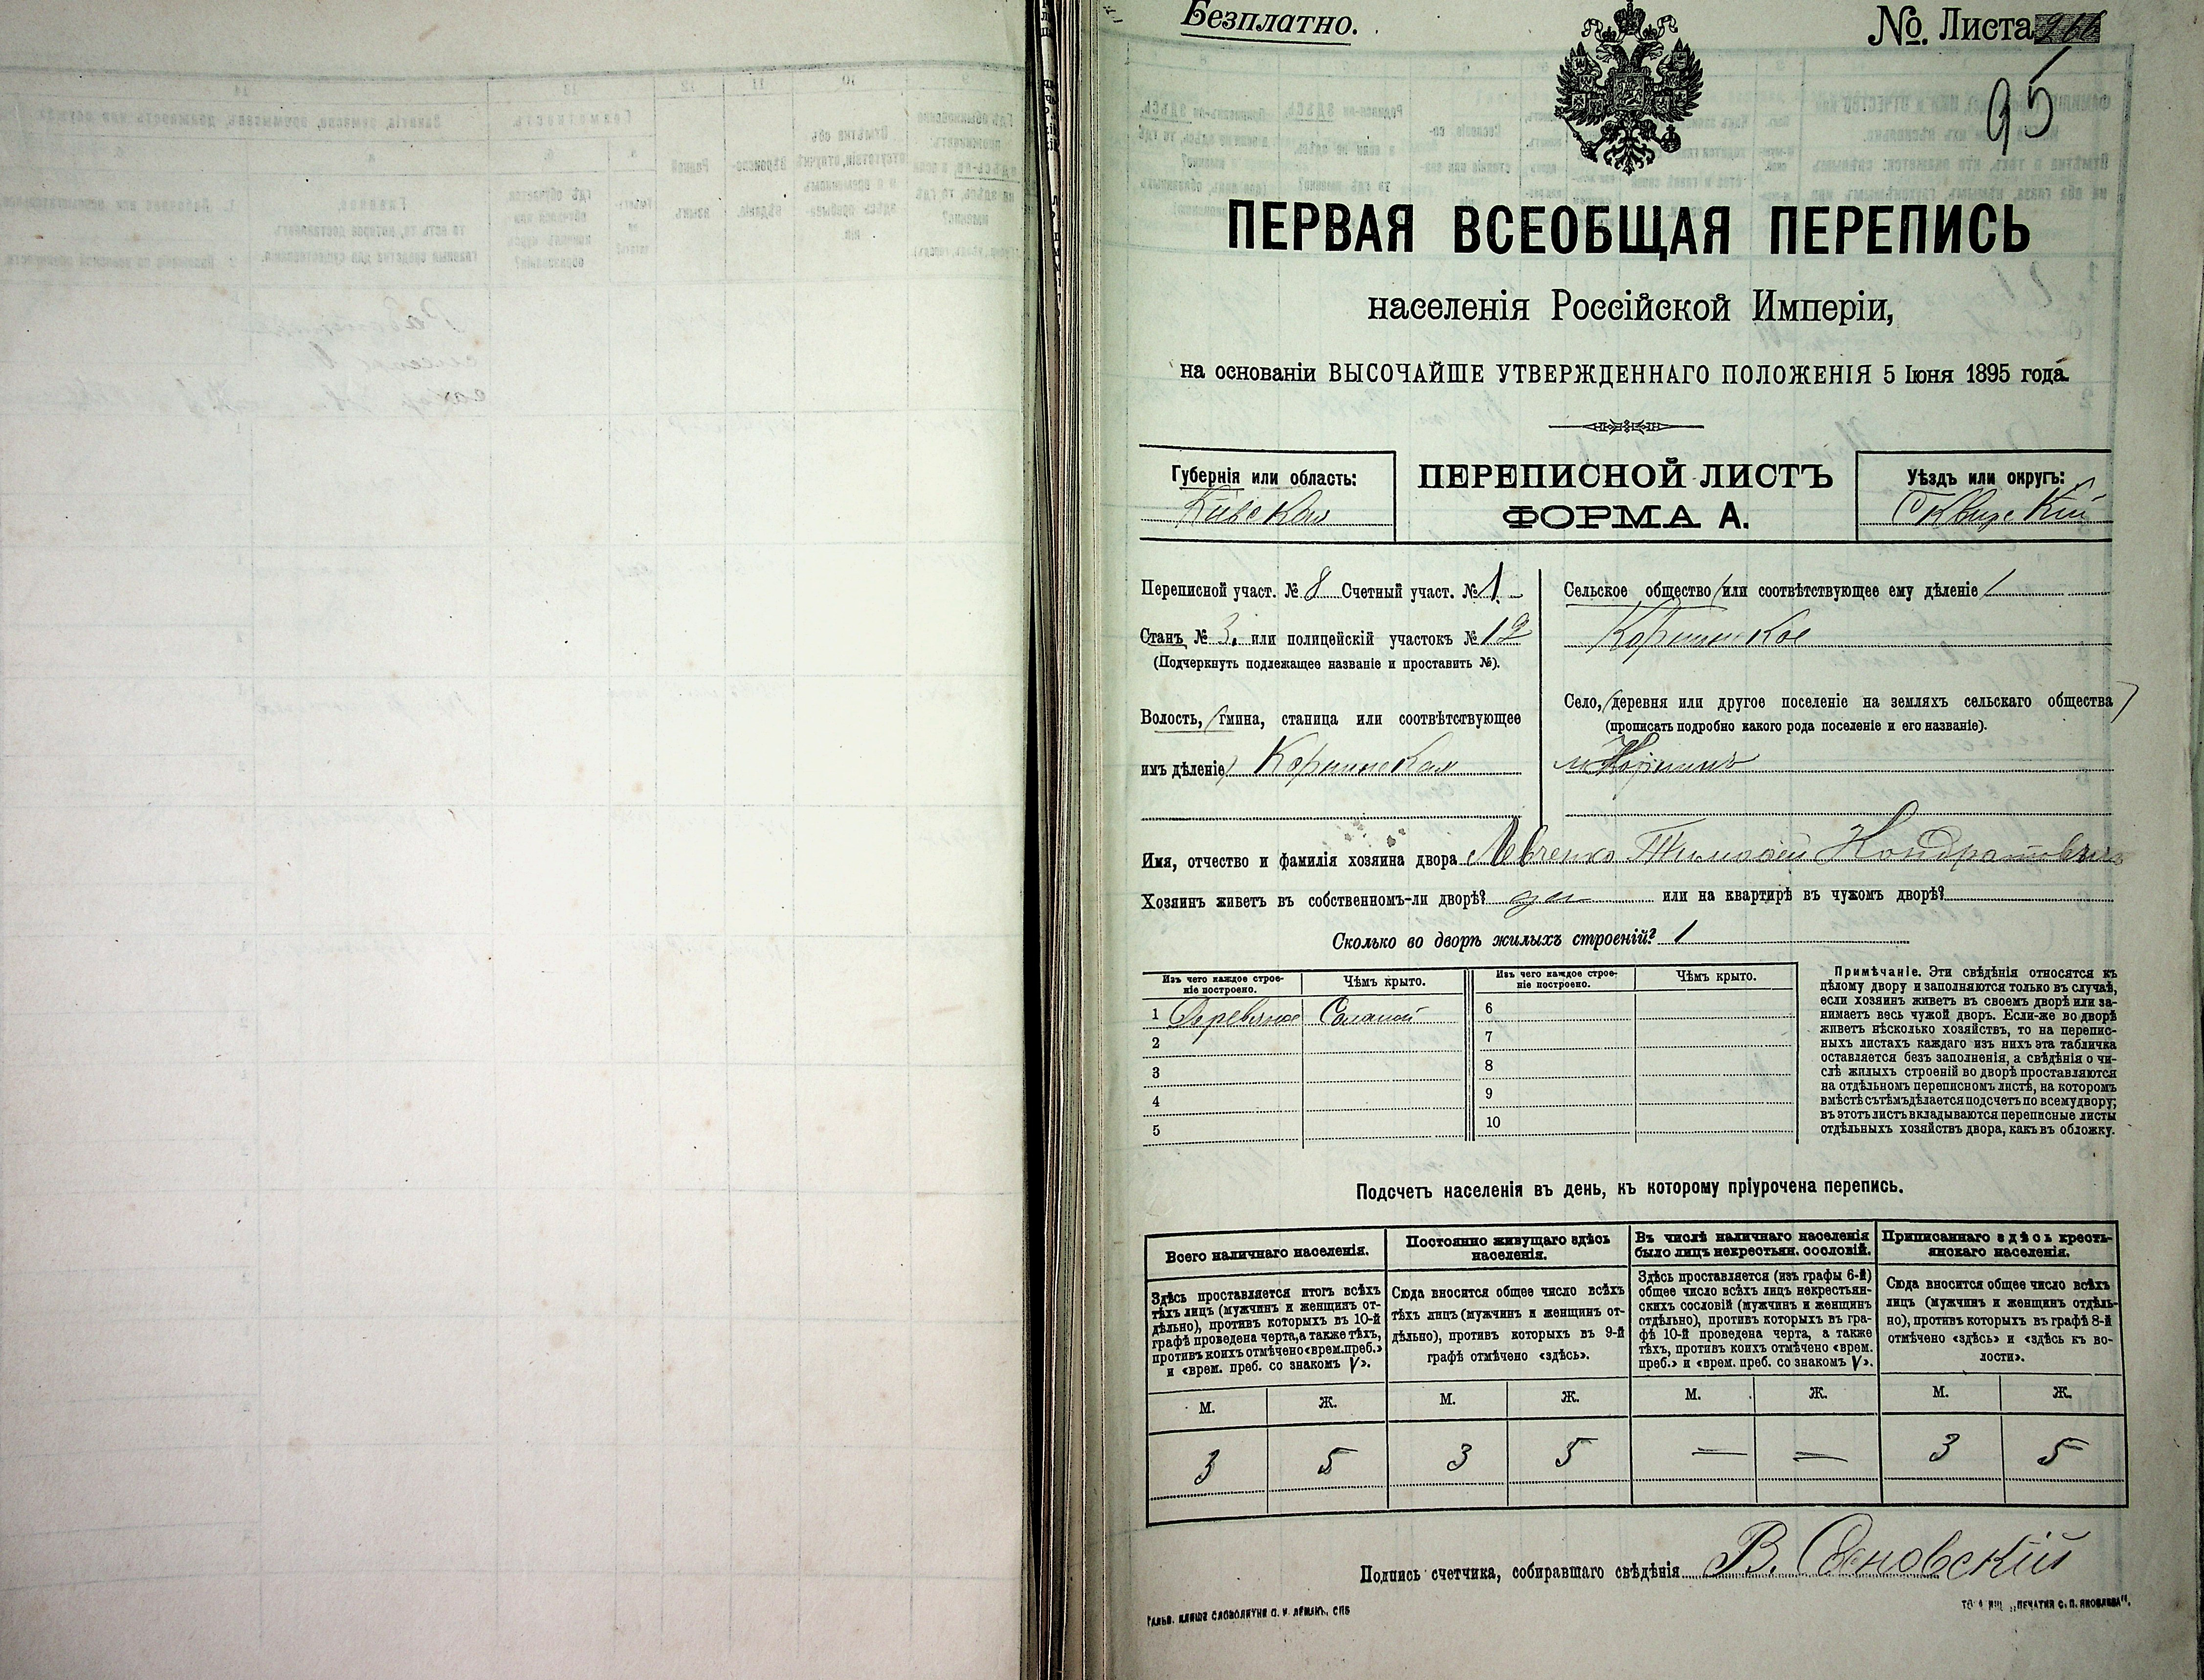 Безплатно.
№ Листа
95
ПЕРВАЯ ВСЕОБЩАЯ ПЕРЕПИСЬ
населенія Россійской Имперіи,
на основаніи ВЫСОЧАЙШЕ УТВЕРЖДЕННАГО ПОЛОЖЕНІЯ 5 Іюня 1895 года.
Губернія или область:
Кіевская
ПЕРЕПИСНОЙ ЛИСТЪ
ФОРМА А.
Уѣздъ или округъ:
Сквирскій
Переписной участ. № 8 Счетный участ. № 1
Станъ № 3. или полицейскій участокъ № 12
(Подчеркнуть подлежащее названіе и проставить №).
Волость, (гмина, станица или соотвѣтствующее
имъ дѣленіе) Корнинская
Сельское общество (или соотвѣтствующее ему дѣленіе)
Корнинское
Село, (деревня или другое поселеніе на земляхъ сельскаго общества)
(прописать подробно какого рода поселеніе и его названіе).
м. Корнинъ
Имя, отчество и фамилія хозяина двора Левченко Тимофей Кондратовичъ
Хозяинъ живетъ въ собственномъ-ли дворѣ? да или на квартирѣ въ чужомъ дворѣ?
Сколько во дворѣ жилыхъ строеній? 1
Изъ чего каждое строе-
ніе построено.
Чѣмъ крыто.
1 Деревяное Соломой
2
3
4
5
Изъ чего каждое строе-
ніе построено.
Чѣмъ крыто.
6
7
8
9
10
Примѣчаніе. Эти свѣдѣнія относятся къ
цѣлому двору и заполняются только въ случаѣ,
если хозяинъ живетъ въ своемъ дворѣ или за-
нимаетъ весь чужой дворъ. Если-же во дворѣ
живетъ нѣсколько хозяйствъ, то на перепис-
ныхъ листахъ каждаго изъ нихъ эта табличка
оставляется безъ заполненія, а свѣдѣнія о чи-
слѣ жилыхъ строеній во дворѣ проставляются
на отдѣльномъ переписномъ листѣ, на которомъ
вмѣстѣ съ тѣмъ дѣлается подсчетъ по всему двору;
въ этотъ листъ вкладываются переписные листы
отдѣльныхъ хозяйствъ двора, какъ въ обложку.
Подсчетъ населенія въ день, къ которому пріурочена перепись.
Всего наличнаго населенія.
Здѣсь проставляется итогъ всѣхъ
тѣхъ лицъ (мужчинъ и женщинъ от-
дѣльно), противъ которыхъ въ 10-й
графѣ проведена черта, а также тѣхъ,
противъ коихъ отмѣчено «врем. преб.»
и «врем. преб. со знакомъ V».
М. Ж.
3 5
Постоянно живущаго здѣсь
населенія.
Сюда вносится общее число всѣхъ
тѣхъ лицъ (мужчинъ и женщинъ от-
дѣльно), противъ которыхъ въ 9-й
графѣ отмѣчено «здѣсь».
М. Ж.
3 5
Въ числѣ наличнаго населенія
было лицъ некрестьян. сословій.
Здѣсь проставляется (изъ графы 6-й)
общее число всѣхъ лицъ некрестьян-
скихъ сословій (мужчинъ и женщинъ
отдѣльно), противъ которыхъ въ гра-
фѣ 10-й проведена черта, а также
тѣхъ, противъ коихъ отмѣчено «врем.
преб.» и «врем. преб. со знакомъ V».
М. Ж.
— —
Приписаннаго здѣсь кресть-
янскаго населенія.
Сюда вносится общее число всѣхъ
лицъ (мужчинъ и женщинъ отдѣль-
но), противъ которыхъ въ графѣ 8-й
отмѣчено «здѣсь» и «здѣсь къ во-
лости».
М. Ж.
3 5
Подпись счетчика, собиравшаго свѣдѣнія В.